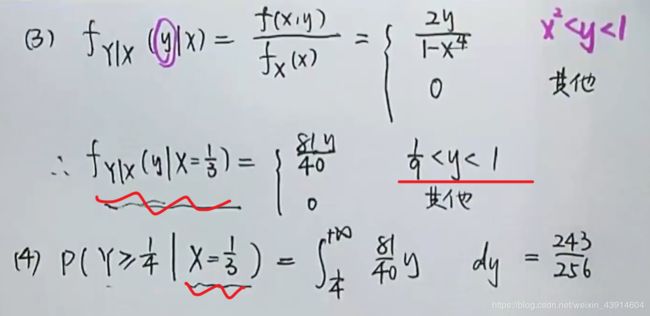 (3) f_{Y|X}(y|x) = \frac{f(x,y)}{f_X(x)} = \begin{cases} \frac{2y}{1-x^4} & x^2<y<1 \\ 0 & 其他 \end{cases}
∴ f_{Y|X}(y|X=\frac{1}{3}) = \begin{cases} \frac{81y}{40} & \frac{1}{9}<y<1 \\ 0 & 其他 \end{cases}
(4) P(Y≥\frac{1}{4} | X=\frac{1}{3}) = \int_{\frac{1}{4}}^{+∞} \frac{81}{40}y dy = \frac{243}{256}
https://blog.csdn.net/weixin_43914604